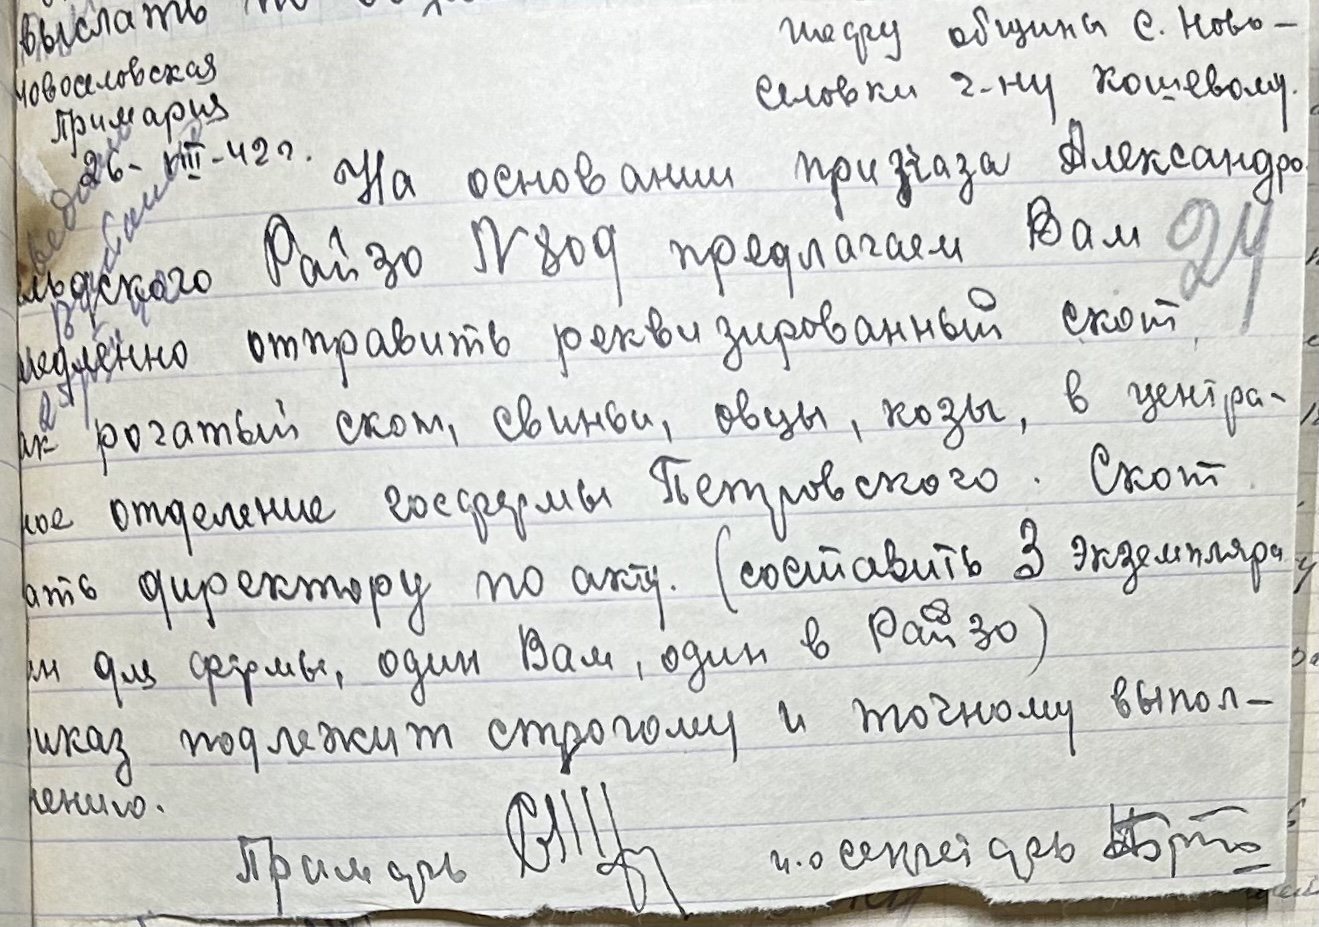 выслать
Новоселовская
Примария
26-VIII-42 г.
шефу общины с. Ново-
селовки г-ну Кошевому.
На основании приказа Александро
льдского Райзо N 809 предлагаем Вам
24
медленно отправить реквизированный скот
ак рогатый скот, свиньи, овцы, козы, в центра-
ное отделение госфермы Петровского. Скот
ать директору по акту. (составить 3 экземпляра
ин для фермы, один Вам, один в Райзо)
иказ подлежит строгому и точному выпол-
нению.
Примарь
и.о секретарь